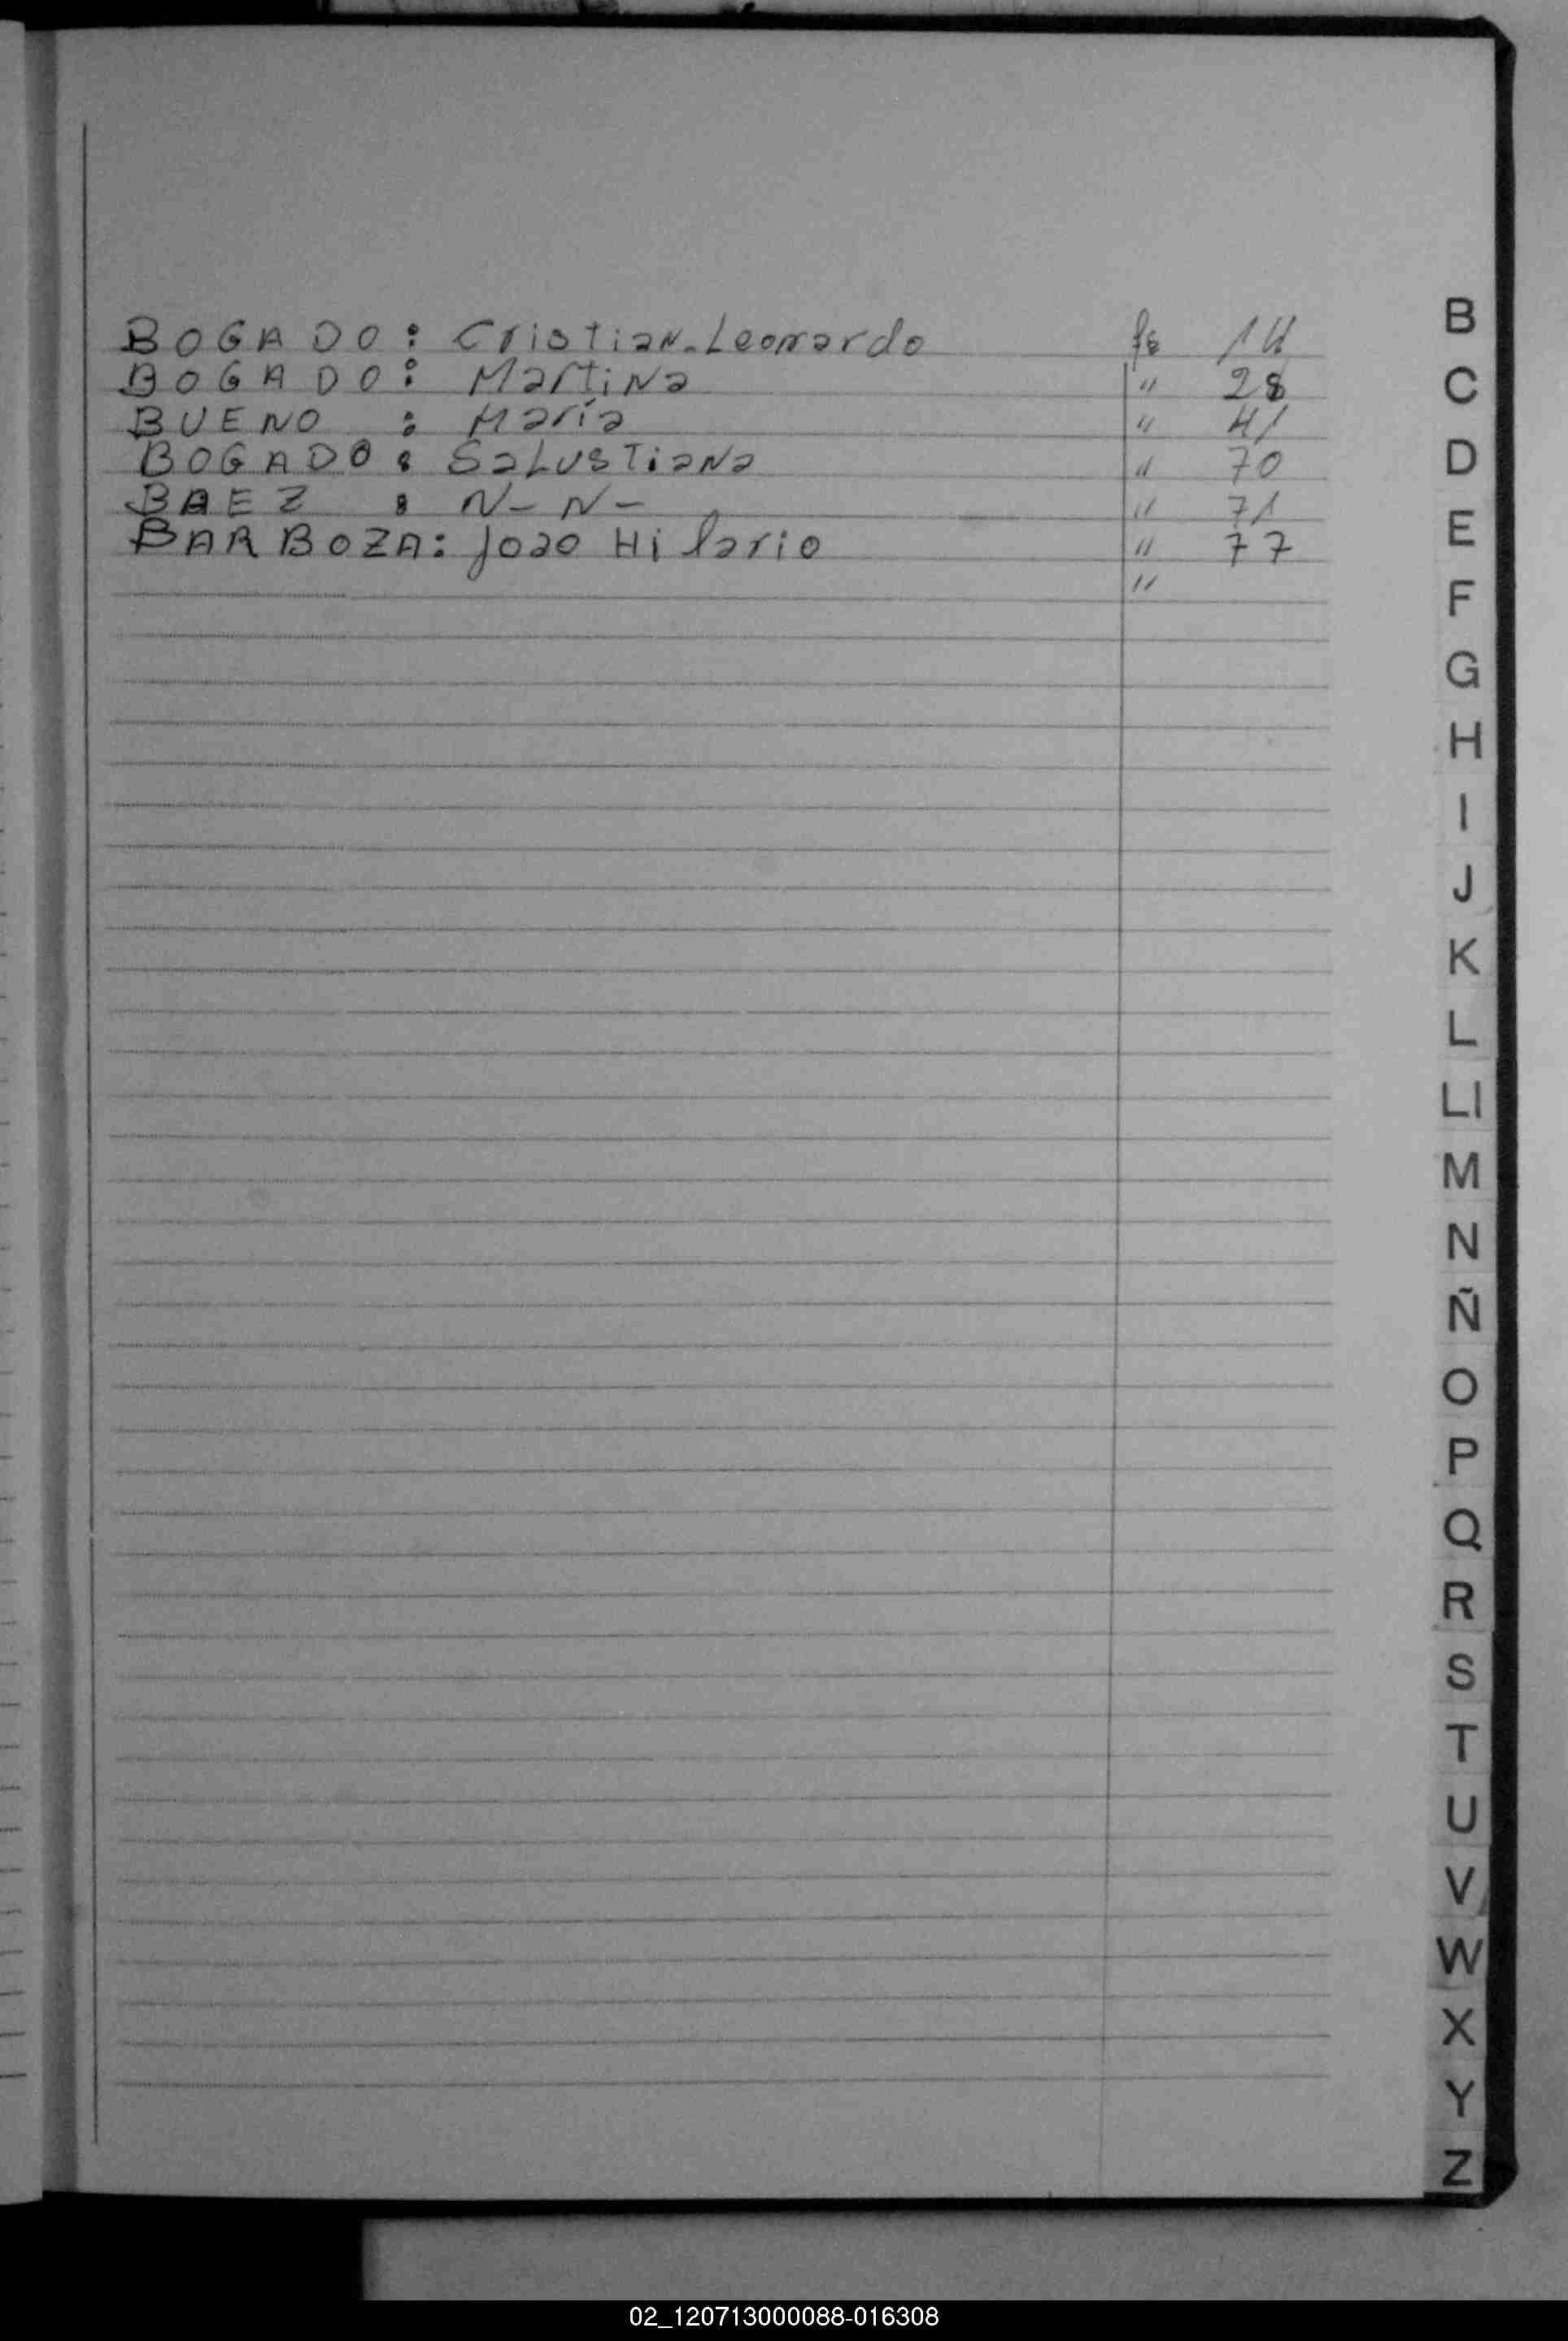 BOGADO: Cristian. Leonardo fs 14
BOGADO: Martina " 28
BUENO : María " 41
BOGADO: Salustiana " 70
BAEZ : N- N- " 71
BARBOZA: Joao Hilario " 77
"
B
C
D
E
F
G
H
I
J
K
L
Ll
M
N
Ñ
O
P
Q
R
S
T
U
V
W
X
Y
Z
02_120713000088-016308